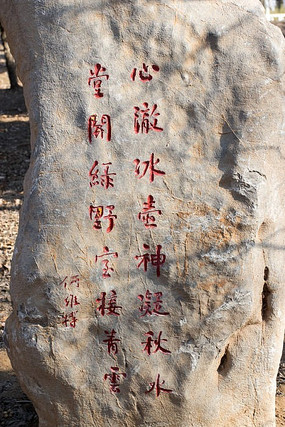 心澈冰壶神凝秋水
堂開綠野室接青雲
何惟特